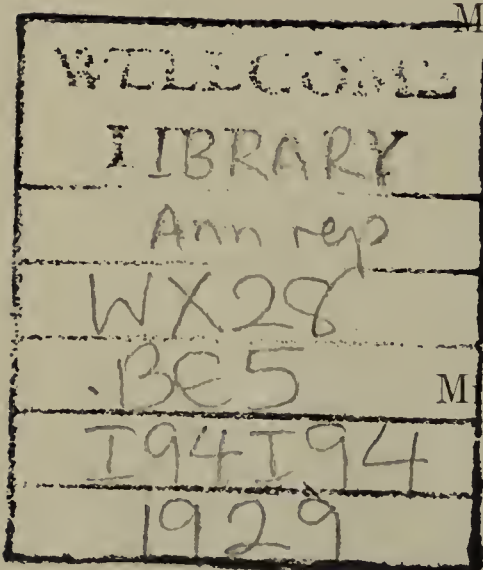 M
WELLCOME
LIBRARY
Ann rep
WX28
.BE5
M
I94I94
1929